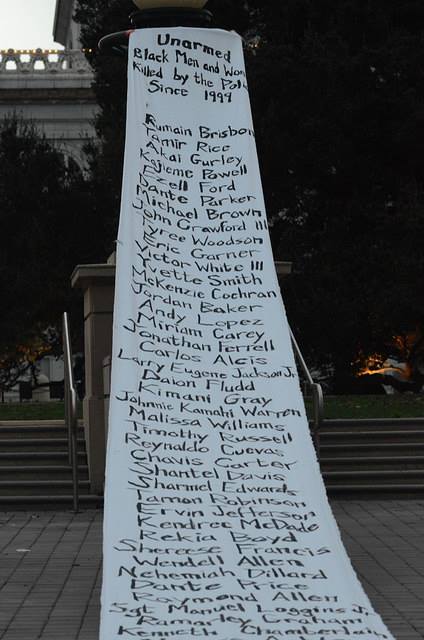 Unarmed
Black Men and Wom
Killed by the Poli
Since 1999
Rumain Brisbon
Tamir Rice
Akai Gurley
Kajieme Powell
Ezell Ford
Dante Parker
Michael Brown
John Crawford III
Tyree Woodson
Eric Garner
Victor White III
Yvette Smith
McKenzie Cochran
Jordan Baker
Andy Lopez
Miriam Carey
Jonathan Ferrell
Carlos Alcis
Larry Eugene Jackson Jr.
Daion Fludd
Kimani Gray
Johnnie Kamahi Warren
Malissa Williams
Timothy Russell
Reynaldo Cuevas
Chavis Carter
Shantel Davis
Sharmel Edwards
Tamon Robinson
Ervin Jefferson
Kendrec McDade
Rekia Boyd
Shereese Francis
Wendell Allen
Nehemiah Dillard
Dante Price
Raymond Allen
Sgt Manuel Loggins Jr.
Ramarley Graham
Kenneth Chamberla